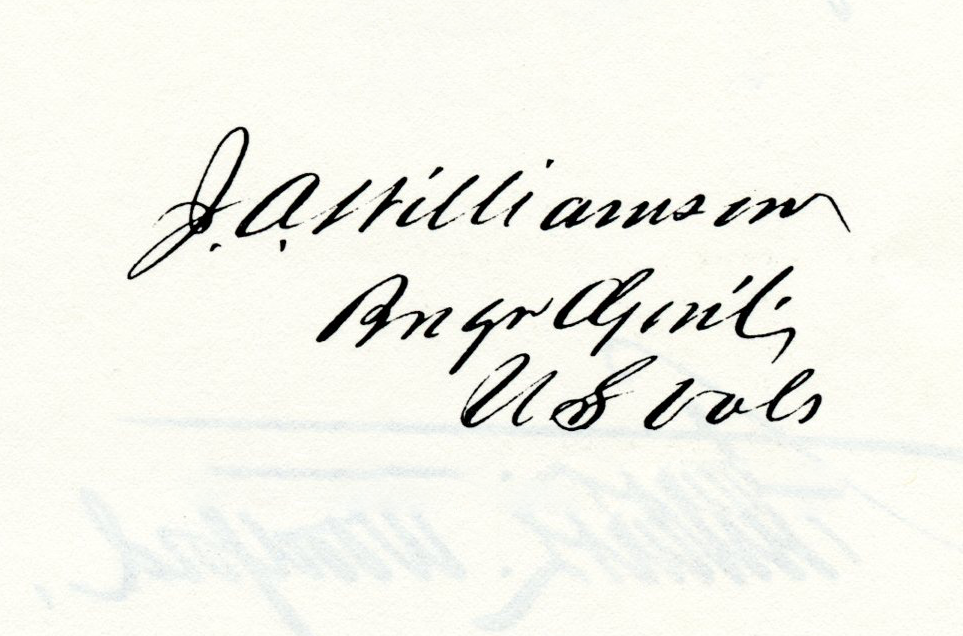 J. A. Williamson
Brig Genl,
U S Vols